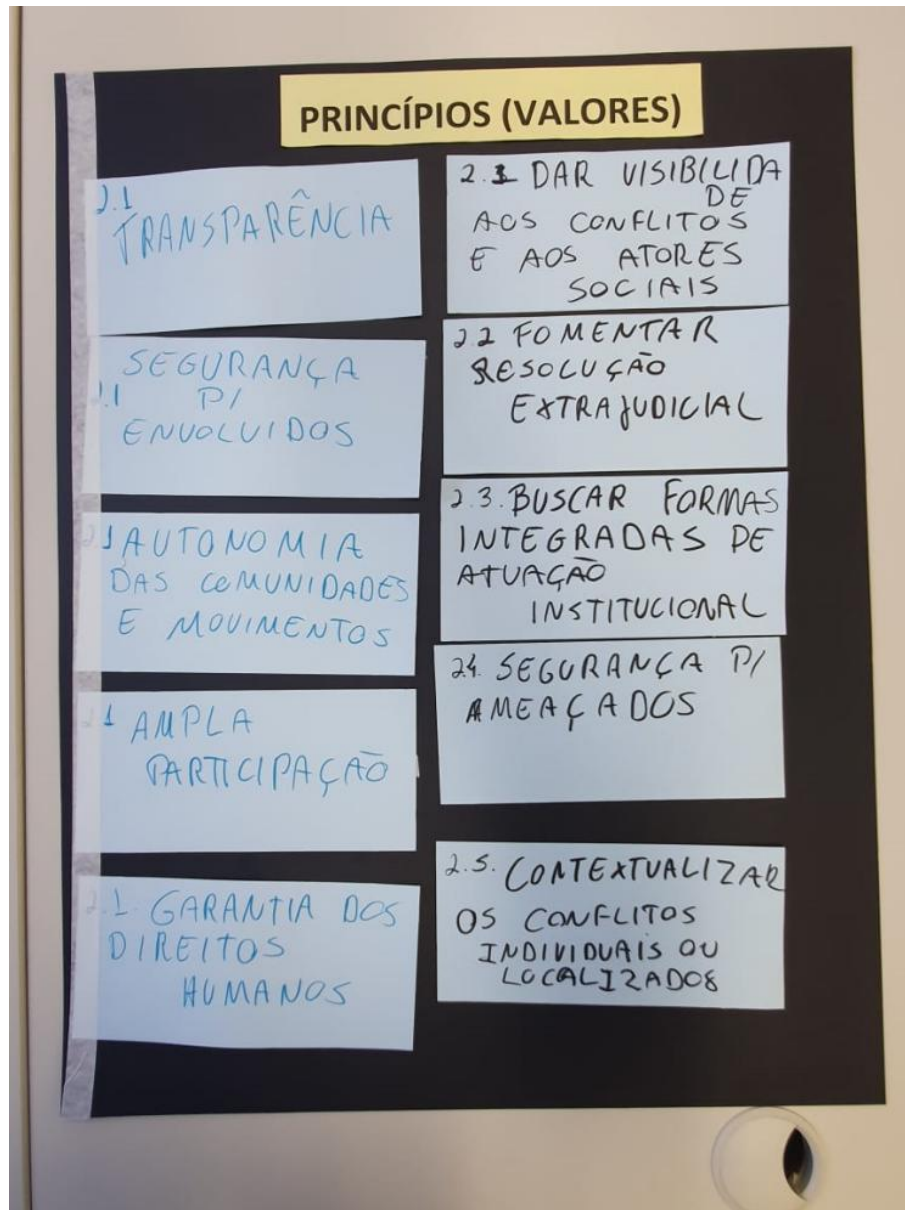 PRINCÍPIOS (VALORES)
2.1
TRANSPARÊNCIA
SEGURANÇA
2.1 P/
ENVOLVIDOS
2.1 AUTONOMIA
DAS COMUNIDADES
E MOVIMENTOS
2.1 AMPLA
PARTICIPAÇÃO
2.1. GARANTIA DOS
DIREITOS
HUMANOS
2.1 DAR VISIBILIDA
DE
AOS CONFLITOS
E AOS ATORES
SOCIAIS
2.2 FOMENTAR
RESOLUÇÃO
EXTRAJUDICIAL
2.3. BUSCAR FORMAS
INTEGRADAS DE
ATUAÇÃO
INSTITUCIONAL
2.4. SEGURANÇA P/
AMEAÇADOS
2.5. CONTEXTUALIZAR
OS CONFLITOS
INDIVIDUAIS OU
LOCALIZADOS